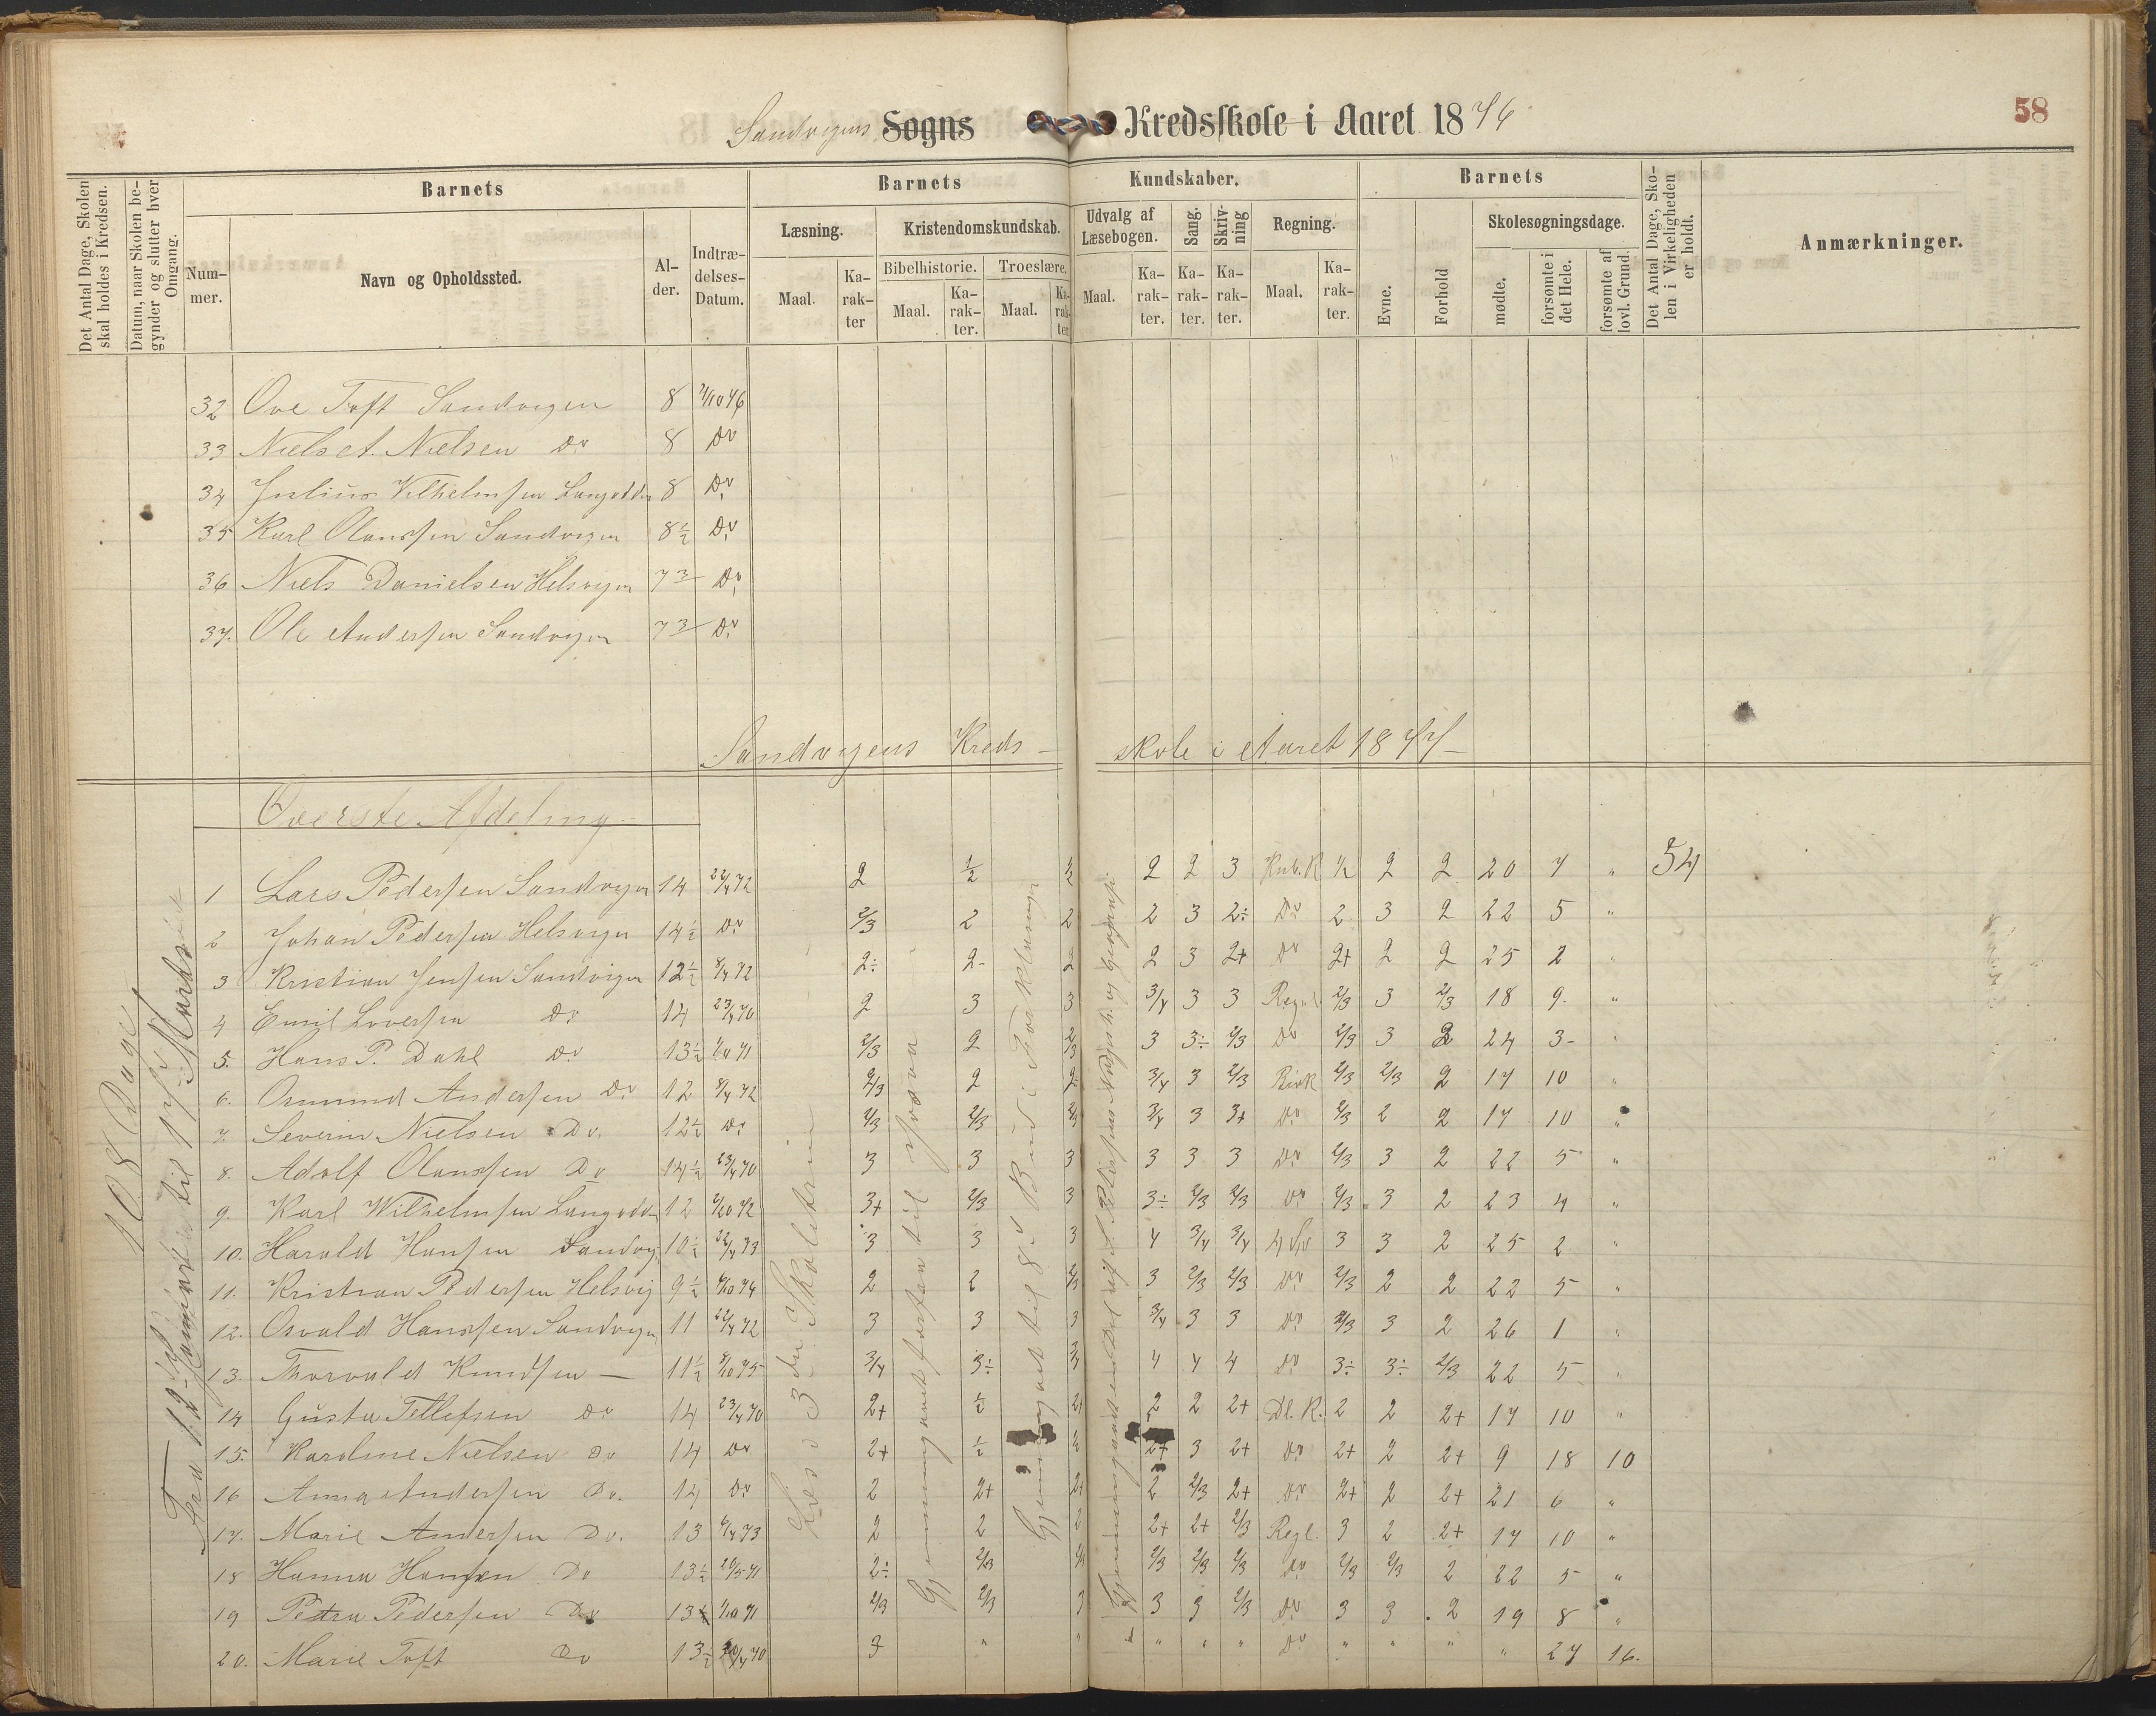 58
Sandvigens Sogns Kredsskole i Aaret 1876
Det Antal Dage, Skolen skal holdes i Kredsen.
Datum, naar Skolen begynder og slutter hver Omgang.
Barnets
Nummer.
Navn og Opholdssted.
Alder.
Indtrædelses-Datum.
Barnets Kundskaber.
Læsning.
Maal.
Karakter
Kristendomskundskab.
Bibelhistorie.
Maal.
Karakter.
Troeslære.
Maal.
Karakter
Udvalg af Læsebogen.
Maal.
Karakter.
Sang.
Karakter.
Skrivning
Karakter.
Regning.
Maal.
Karakter.
Barnets
Evne.
Forhold
Skolesøgningsdage.
mødte.
forsømte i det Hele.
forsømte af lovl. Grund.
Det Antal Dage, Skolen i Virkeligheden er holdt.
Anmærkninger.
32 Ove Toft Sandvigen 8 2/10 76
33 Niels A. Nielsen Do 8 Do
34 Julius Vilhelmsen Langodden 8 Do
35 Karl Olaussen Sandvigen 8½ Do
36 Niels Danielsen Helsvigen 7 3/ Do
37. Ole Andersen Sandvigen 7 3/ Do
Sandvigens Kreds- skole i Aaret 1877
Øverste Afdeling
108 Dage
Fra 12te Januar til 17de Marts
Læs. 3die Skoletrin
Gjennemgaaet forfra til
Gjennemgaaet til 8de Bud i Forklaringen
1 Lars Pedersen Sandvigen 14 22/4 72 2 ½ ½ 2 2 3 Kub.R ½ 2 2 20 7 " 54
2 Johan Pedersen Helsvigen 14½ Do 2/3 2 2 2 3 2÷ Do 2 3 2 22 5 "
3 Kristian Jensen Sandvigen 12½ 8/4 72 2÷ 2- 2 2 3 2+ Do 2+ 2 2 25 2 "
4 Emil Loversen Do 14 23/4 70 2 3 3 3/4 3 3 Regul. 2/3 3 2/3 18 9. "
5. Hans P. Dahl Do 13½ 1/10 71 2/3 2 2/3 3 3÷ 2/3 Do 2/3 3 2 24 3- "
6. Osmund Andersen Do 12 8/4 72 2/3 2 2 3/4 3 2/3 Brøk 2/3 2/3 2 17 10 "
7. Severin Nielsen Do. 12½ Do 2/3 2/3 2/3 3/4 3 3+ Do 2/3 2 2 17 10 "
8. Adolf Olaussen Do 14½ 23/4 70 3 3 3 3 3 3 Do 2/3 3 2 22 5 "
9. Karl Wilhelmsen Langodd 12 1/10 72 3+ 2/3 3 3÷ 2/3 2/3 Do 2/3 3 2 23 4 "
10. Harald Hansen Sandvig 10½ 22/4 73 3 3 3 4 3/4 3/4 4 Sp 3 3 2 25 2 "
11. Kristian Pedersen Helsvig 9½ 1/10 74 2 2 2/3 3 2/3 2/3 Do 2/3 2 2 22 5 "
12. Osvald Hanssen Sandvigen 11 22/4 72 3 3 3 3/4 3 3 Do 2/3 3 2 26 1 "
13. Thorvald Knudsen — 11½ 8/10 75 3/4 3÷ 3/4 4 4 4 Do 3÷ 3÷ 2/3 22 5 "
14 Gusta Tellefsen Do 14 23/4 70 2+ ½ 2+ 2 2 2+ Dl. R. 2 2 2+ 17 10 "
15. Karoline Nielsen Do 14 Do 2+ ½ ½ 2+ 3 2+ Do 2+ 2 2+ 9 18 10
16 Anna Andersen Do. 14 Do 2 2+ 2+ 2 2/3 2+ Do 2+ 2 2+ 21 6 "
17. Marie Andersen Do. 13 4/4 73 2 2 2 2+ 2+ 2/3 Regl. 3 2 2+ 17 10 "
18 Hanna Hansen Do 13½ 20/5 71 2÷ 2/3 2/3 2/3 2/3 2/3 Do 2/3 2/3 2 22 5 "
19 Petra Pedersen Do 13½ 1/10 71 2/3 2/3 3 3 3 2/3 Do 3 3 2 19 8 "
20. Marie Toft Do 13½ 20/4 70 3 " " " " " Do " " " " 27 16.